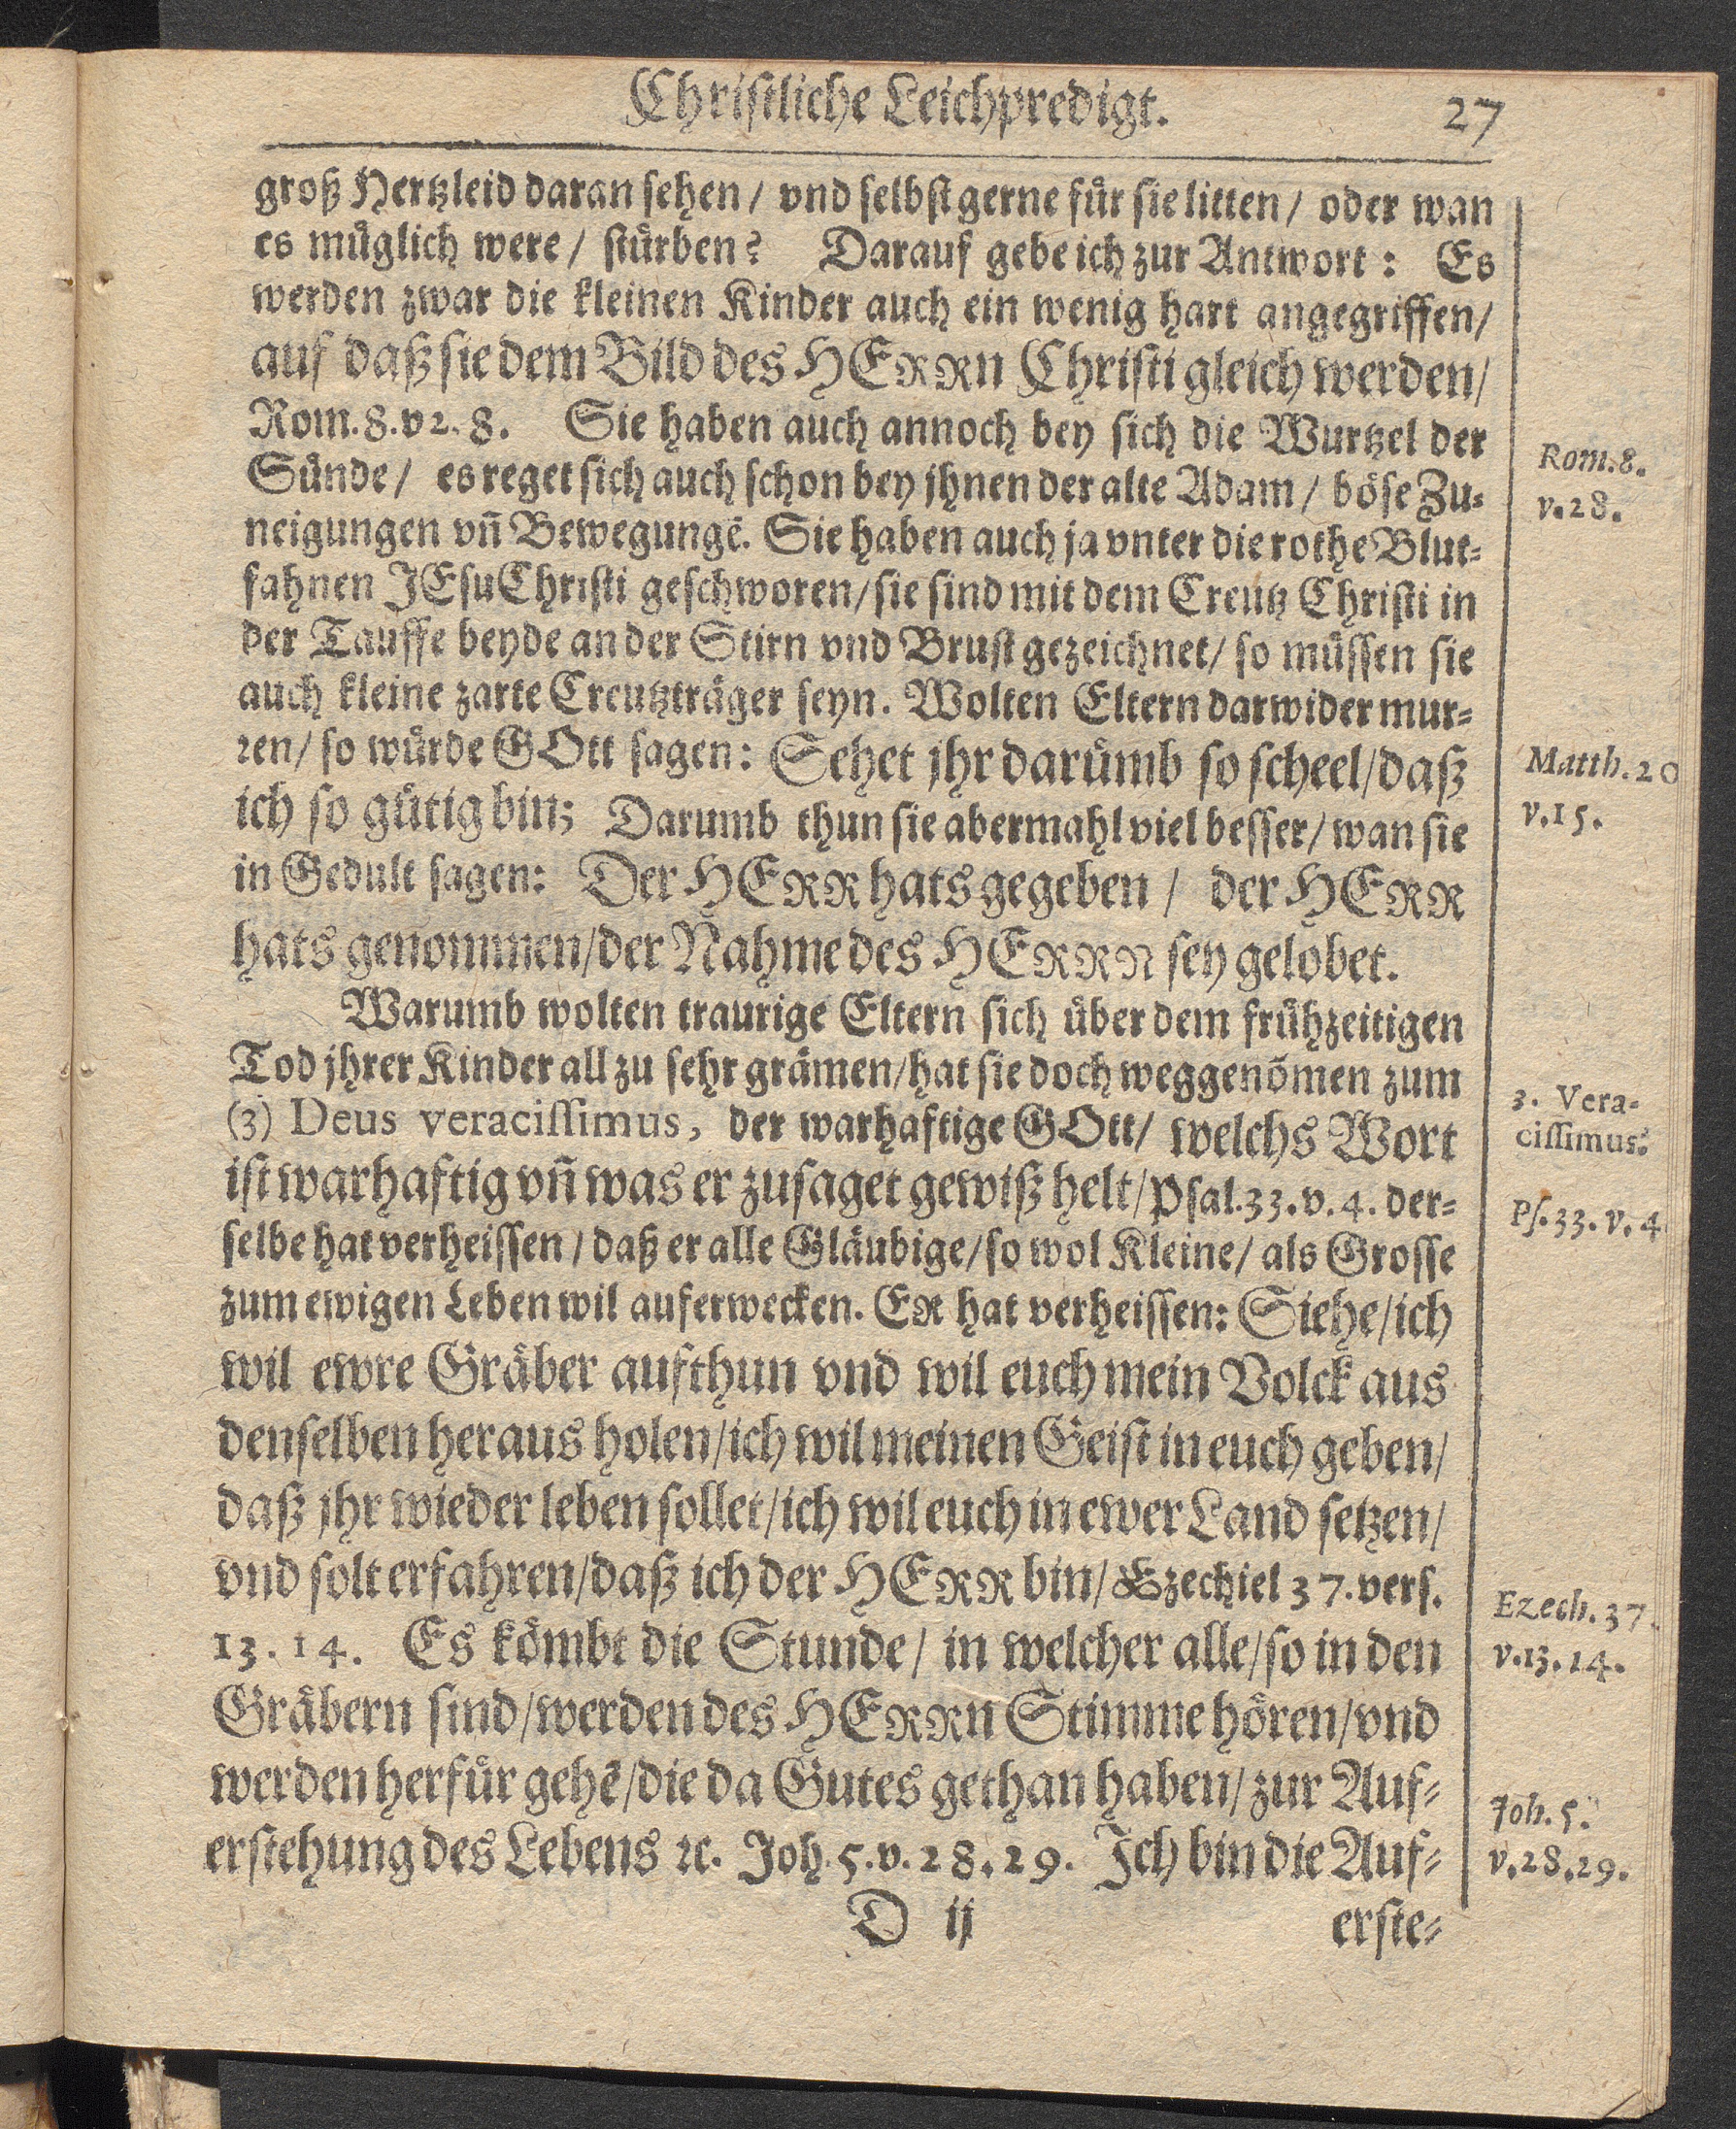 Christliche Leichpredigt. 27
groß Hertzleid daran sehen / vnd selbst gerne fuͤr sie litten / oder wan
es muͤglich were / stuͤrben? Darauf gebe ich zur Antwort: Es
werden zwar die kleinen Kinder auch ein wenig hart angegriffen /
auf daß sie dem Bild des HERRn Christi gleich werden /
Rom. 8. v 2. 8. Sie haben auch annoch bey sich die Wurtzel der
Suͤnde / es reget sich auch schon bey jhnen der alte Adam / boͤse Zu-
neigungen vñ Bewegungē. Sie haben auch ja vnter die rothe Blut-
fahnen JEsu Christi geschworen / sie sind mit dem Creutz Christi in
der Tauffe beyde an der Stirn vnd Brust gezeichnet / so muͤssen sie
auch kleine zarte Creutztraͤger seyn. Wolten Eltern darwider mur-
ren / so wuͤrde GOtt sagen: Sehet jhr daruͤmb so scheel / daß
ich so guͤtig bin; Darumb thun sie abermahl viel besser / wan sie
in Gedult sagen: Der HERR hats gegeben / der HERR
hats genommen / der Nahme des HERRN sey gelobet.
Warumb wolten traurige Eltern sich uͤber dem fruͤhzeitigen
Tod jhrer Kinder all zu sehr graͤmen / hat sie doch weggenõmen zum
(3) Deus veracissimus, der warhaftige GOtt / welchs Wort
ist warhaftig vñ was er zusaget gewiß helt / Psal. 33. v. 4. der-
selbe hat verheissen / daß er alle Glaͤubige / so wol Kleine / als Grosse
zum ewigen Leben wil auferwecken. ER hat verheissen: Siehe / ich
wil ewre Graͤber aufthun vnd wil euch mein Volck aus
denselben heraus holen / ich wil meinen Geist in euch geben /
daß jhr wieder leben sollet / ich wil euch in ewer Land setzen /
vnd solt erfahren / daß ich der HERR bin / Ezechiel 37. vers.
13. 14. Es koͤmbt die Stunde / in welcher alle / so in den
Graͤbern sind / werden des HERRn Stimme hoͤren / vnd
werden herfuͤr gehē / die da Gutes gethan haben / zur Auf-
erstehung des Lebens ꝛc. Joh. 5. v. 28. 29. Ich bin die Auf-
D ij erste-
Rom. 8.
v. 28.
Matth. 20
v. 15.
3. Vera-
cissimus.
Ps. 33. v. 4.
Ezech. 37.
v. 13. 14.
Joh. 5.
v. 28. 29.